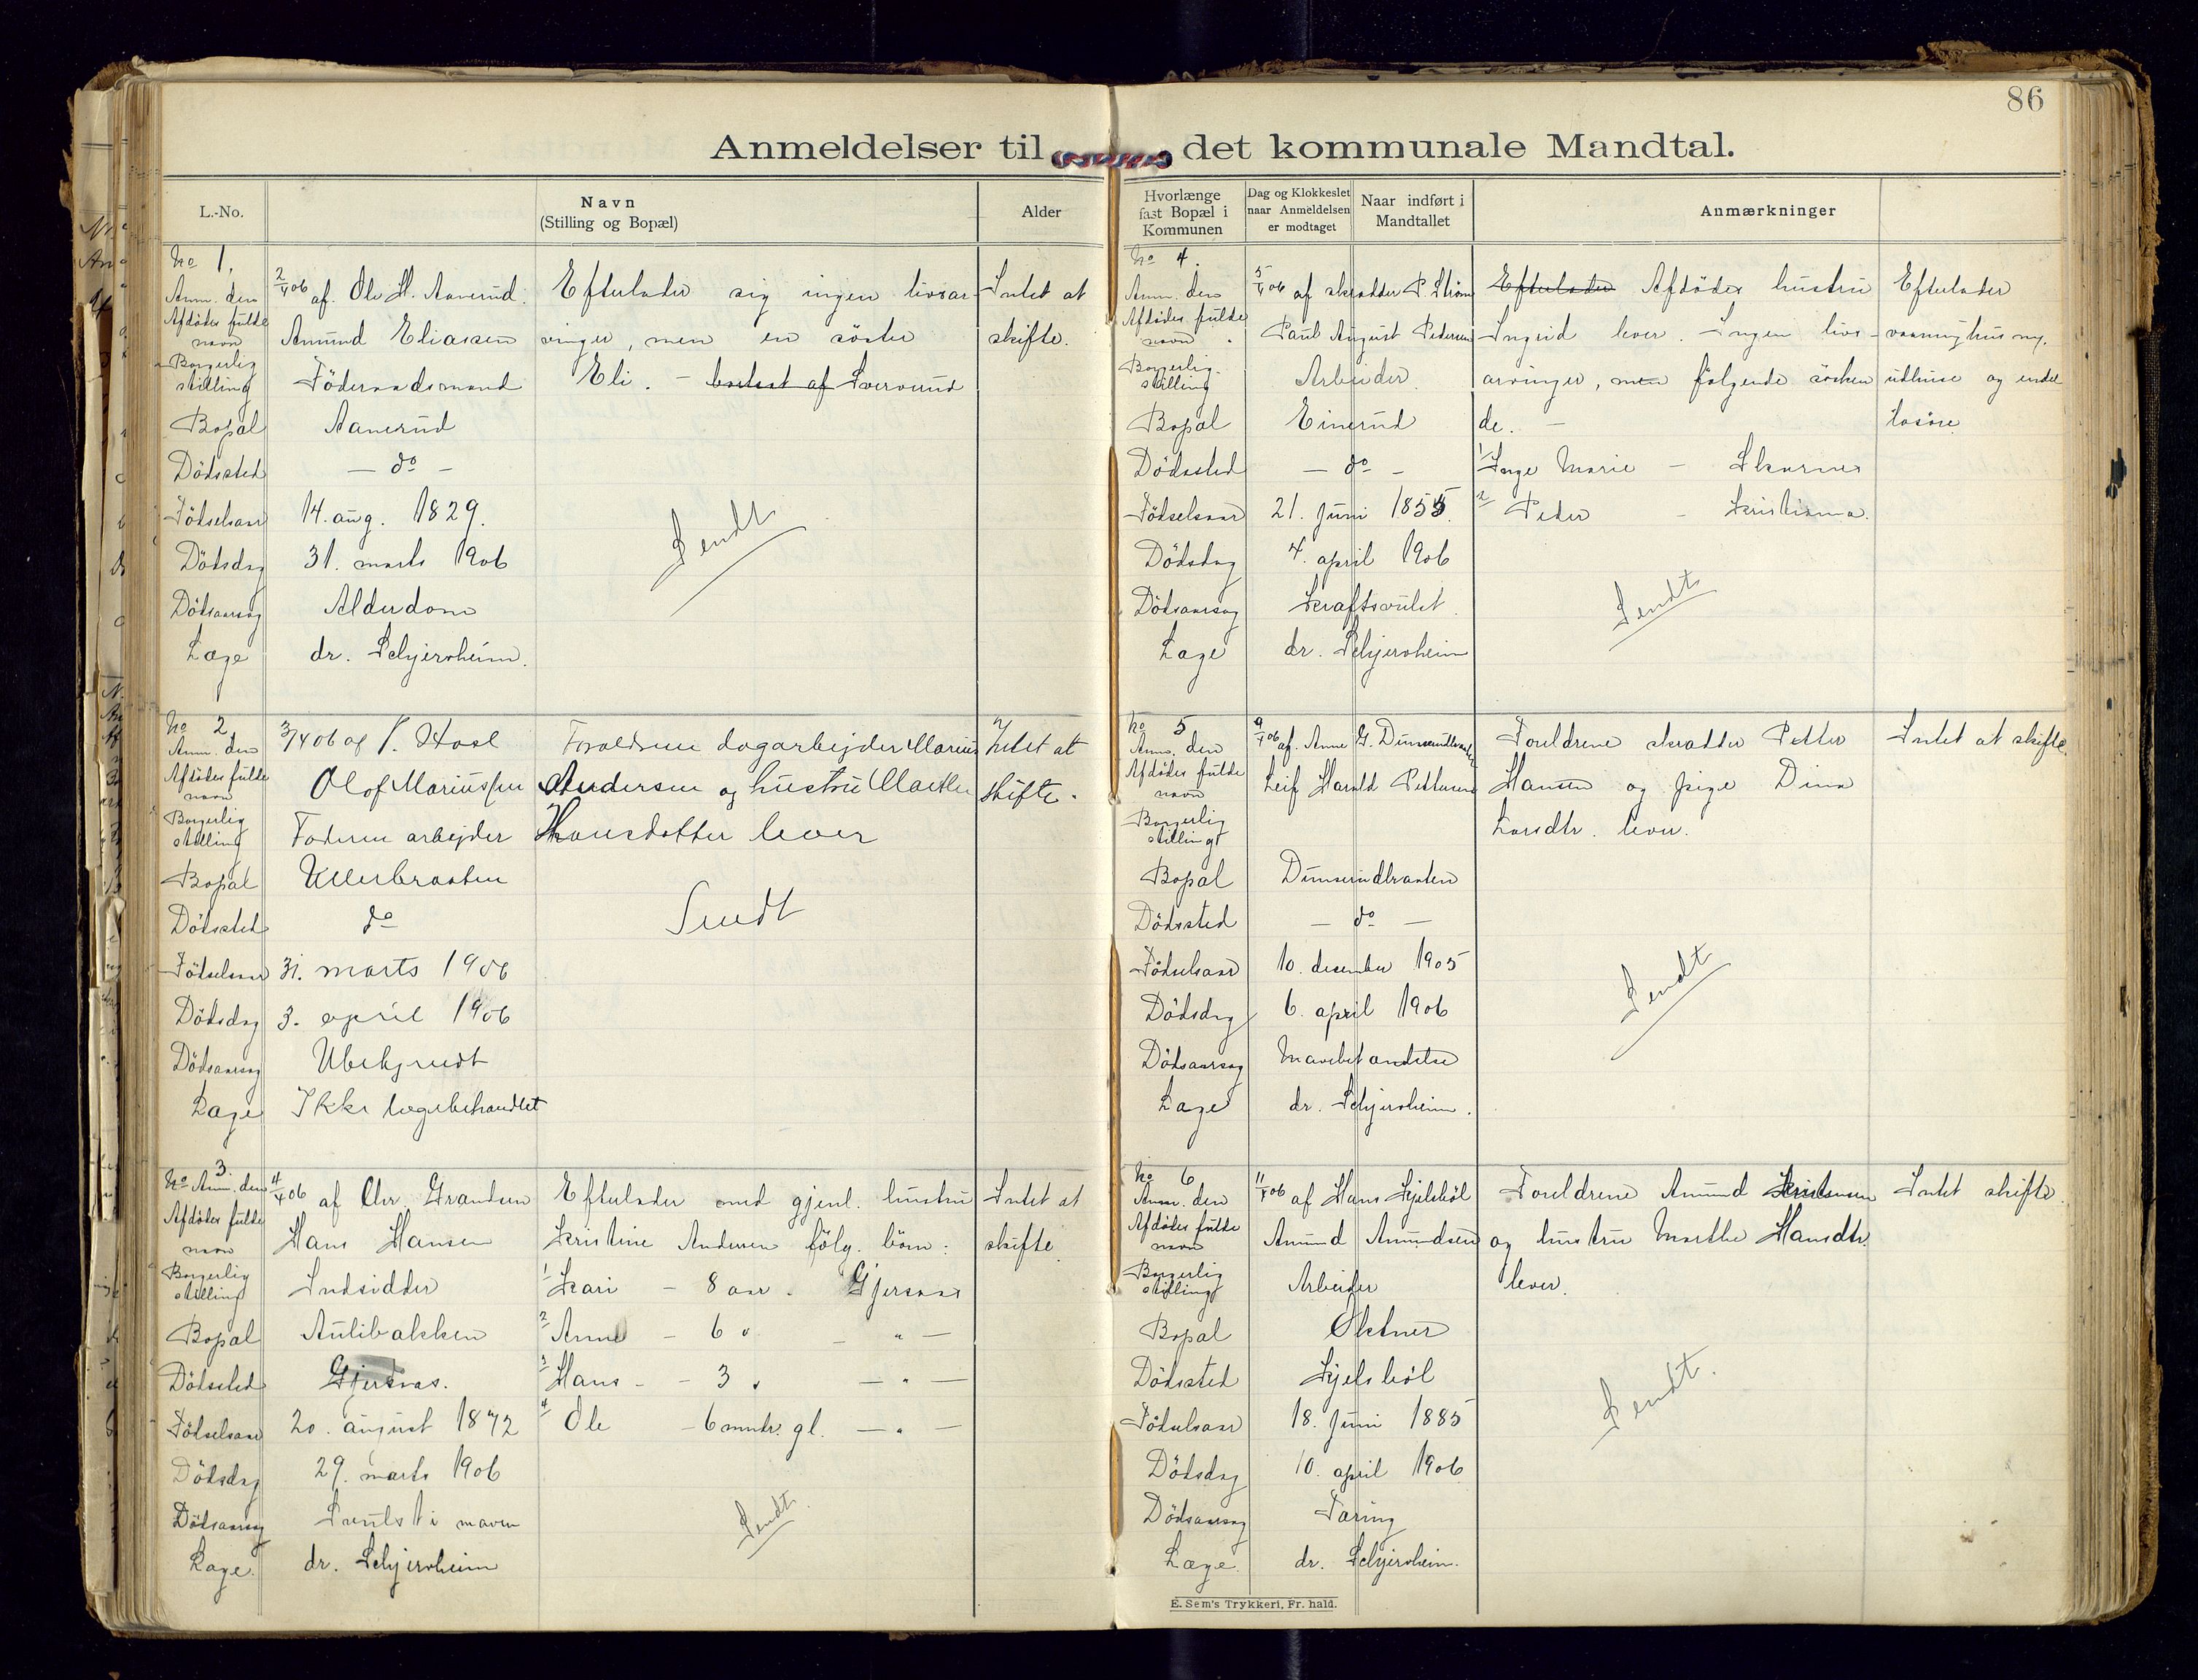 86
Anmeldelser til det kommunale Mandtal.
L.-No.
Navn
(Stilling og Bopæl)
Alder
Hvorlænge
fast Bopæl i
Kommunen
Dag og Klokkeslet
naar Anmeldelsen
er modtaget
Naar indført i
Mandtallet
Anmærkninger
No 1.
Anm. den 2/4 06 af Ole H. Aanerud.
Afdödes fulde navn Amund Eliassen
Borgerlig stilling Föderaadsmand
Bopæl Aanerud
Dödssted — do —
Födselsaar 14. aug. 1829.
Dödsdag 31. marts 1906
Dödsaarsag Alderdom
Læge dr. Schjeroheim.
Efterlader sig ingen livsar-
vinger, men en söster
Eli. — bosat af Sververud
Sendt
Intet at
skifte.
No 2
Anm. den 3/4 06 af P. Hosl
Afdödes fulde navn Olof Mariussen
Borgerlig stilling Faderen arbejder
Bopæl Ullerbraaten
Dödssted do
Födselsaar 31. marts 1906
Dödsdag 3. april 1906
Dödsaarsag Ubekjendt
Læge Ikke lægebehandlet
Foraeldrene dagarbejder Marius
Andersen og hustru Marthe
Hansdatter lever
Sendt
Intet at
skifte.
No 3.
Anm. den 4/4 06 af Chr. Grandsen
Afdödes fulde navn Hans Hansen
Borgerlig stilling Indsidder
Bopæl Aulibakken
Dödssted Gjersnas.
Födselsaar 20. august 1872
Dödsdag 29. marts 1906
Dödsaarsag Svulst i maven
Læge. dr. Schjeroheim
Efterlader med gjenl. hustru
Kristine Andersen fölg. börn:
1 Kari — 8 aar. Gjersnas
2 Anne — 6 " — " —
3 Hans — 3 " — " —
4 Ole — 6 mndr. gl. — " —
Sendt.
Intet at
skifte
No 4.
Anm. den 5/4 06 af skrædder P. Ström
Afdödes fulde navn. Paul August Pedersen
Borgerlig stilling Arbeider.
Bopæl Einerud
Dödssted — do —
Födselsaar 21. Juni 1855.
Dödsdag 4. april 1906
Dödsaarsag Kræftsvulst.
Læge dr. Schjeroheim
Efterlader Afdödes hustru
Ingrid lever. Ingen livs-
arvinger, men fölgende sösken
de. —
1 Inge Marie — Skarnes
2 Peder — Kristiania.
Sendt
Efterlader
vaaninghus ny.
udhuse og endel
lösöre
No 5
Anm. den 9/4 06 af. Anne G. Dunserudbraaten
Afdödes fulde navn Leif Harald Pettersen
Borgerlig stilling
Bopæl Dunserudbraaten
Dödssted — do —
Födselsaar 10. desember 1905
Dödsdag 6. april 1906
Dödsaarsag Mavebetændelse
Læge dr. Schjeroheim.
Foreldrene skrædder Petter
Hansen og pige Dina
Larsdtr. lever.
Sendt
Intet at skifte.
No 6
Anm. den 11/4 06 af Hans Kjelsböl
Afdödes fulde navn Amund Amundsen
Borgerlig stilling Arbeider
Bopæl Öktner
Dödssted Kjelsböl
Födselsaar 18. Juni 1885
Dödsdag 10. april 1906
Dödsaarsag Tæring
Læge. dr. Schjeroheim.
Foreldrene Amund Kristensen
og hustru Marthe Hansdtr.
lever.
Sendt.
Intet skifte.
E. Sem's Trykkeri, Fr. hald.